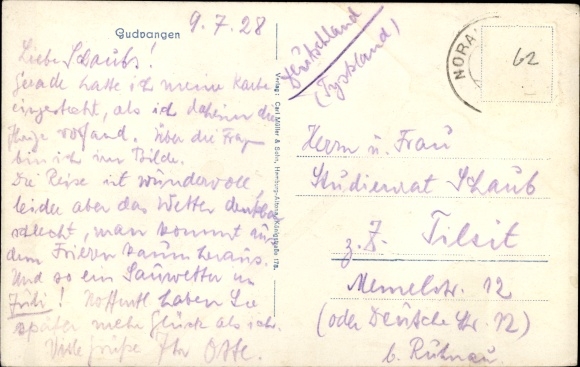 Gudvangen
9.7.28
Liebe Schaubs!
Gerade hatte ich meine Karte
eingesteckt, als ich daheim die
vorfand. Über die
bin ich im Bilde.
Die Reise ist wundervoll,
leider aber das Wetter denkbar
schlecht, man kommt aus
dem Frieren kaum heraus.
Und so ein Sauwetter im
Juli! Hoffentl haben Sie
später mehr Glück als ich.
Viele Grüße Ihr Otte.
Verlag: Carl Müller & Sohn, Hamburg-Altona, Königstraße 178.
Deutschland
(Tyskland)
NORA
62
Herrn u. Frau
Studienrat Schaub
z. Z. Tilsit
Memelstr. 12
(oder Deutsche Str. 12)
b. Ruhnau.